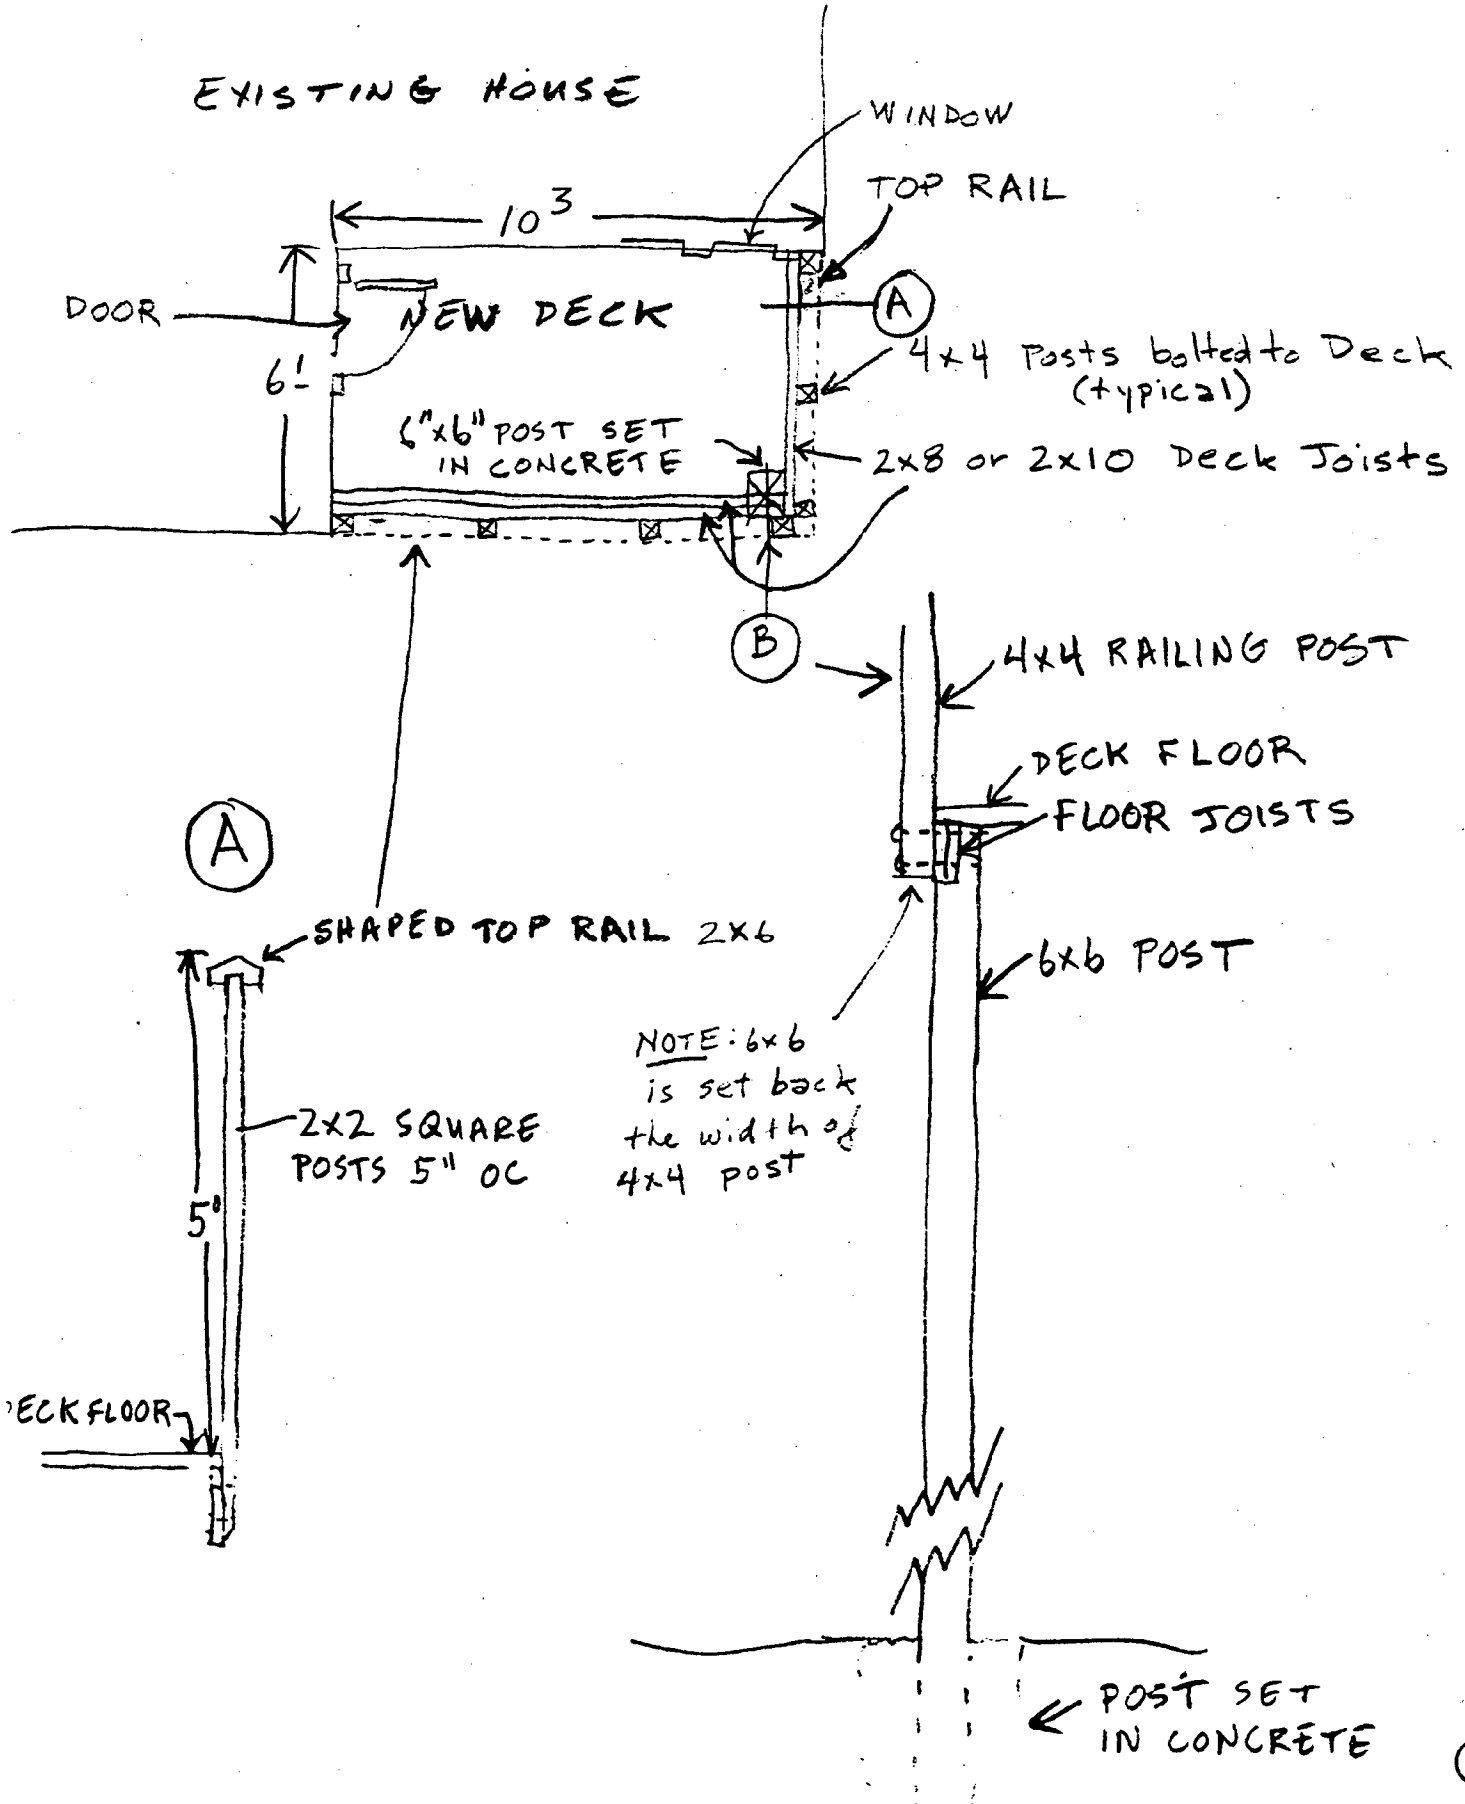 EXISTING HOUSE
WINDOW
TOP RAIL
10 3
DOOR
NEW DECK
A
6'
4x4 Posts bolted to Deck
(typical)
6"x6" POST SET
IN CONCRETE
2x8 or 2x10 Deck Joists
B
4x4 RAILING POST
DECK FLOOR
FLOOR JOISTS
A
SHAPED TOP RAIL 2x6
6x6 POST
NOTE: 6x6
is set back
the width of
4x4 post
2x2 SQUARE
POSTS 5" OC
5'
ECK FLOOR
POST SET
IN CONCRETE